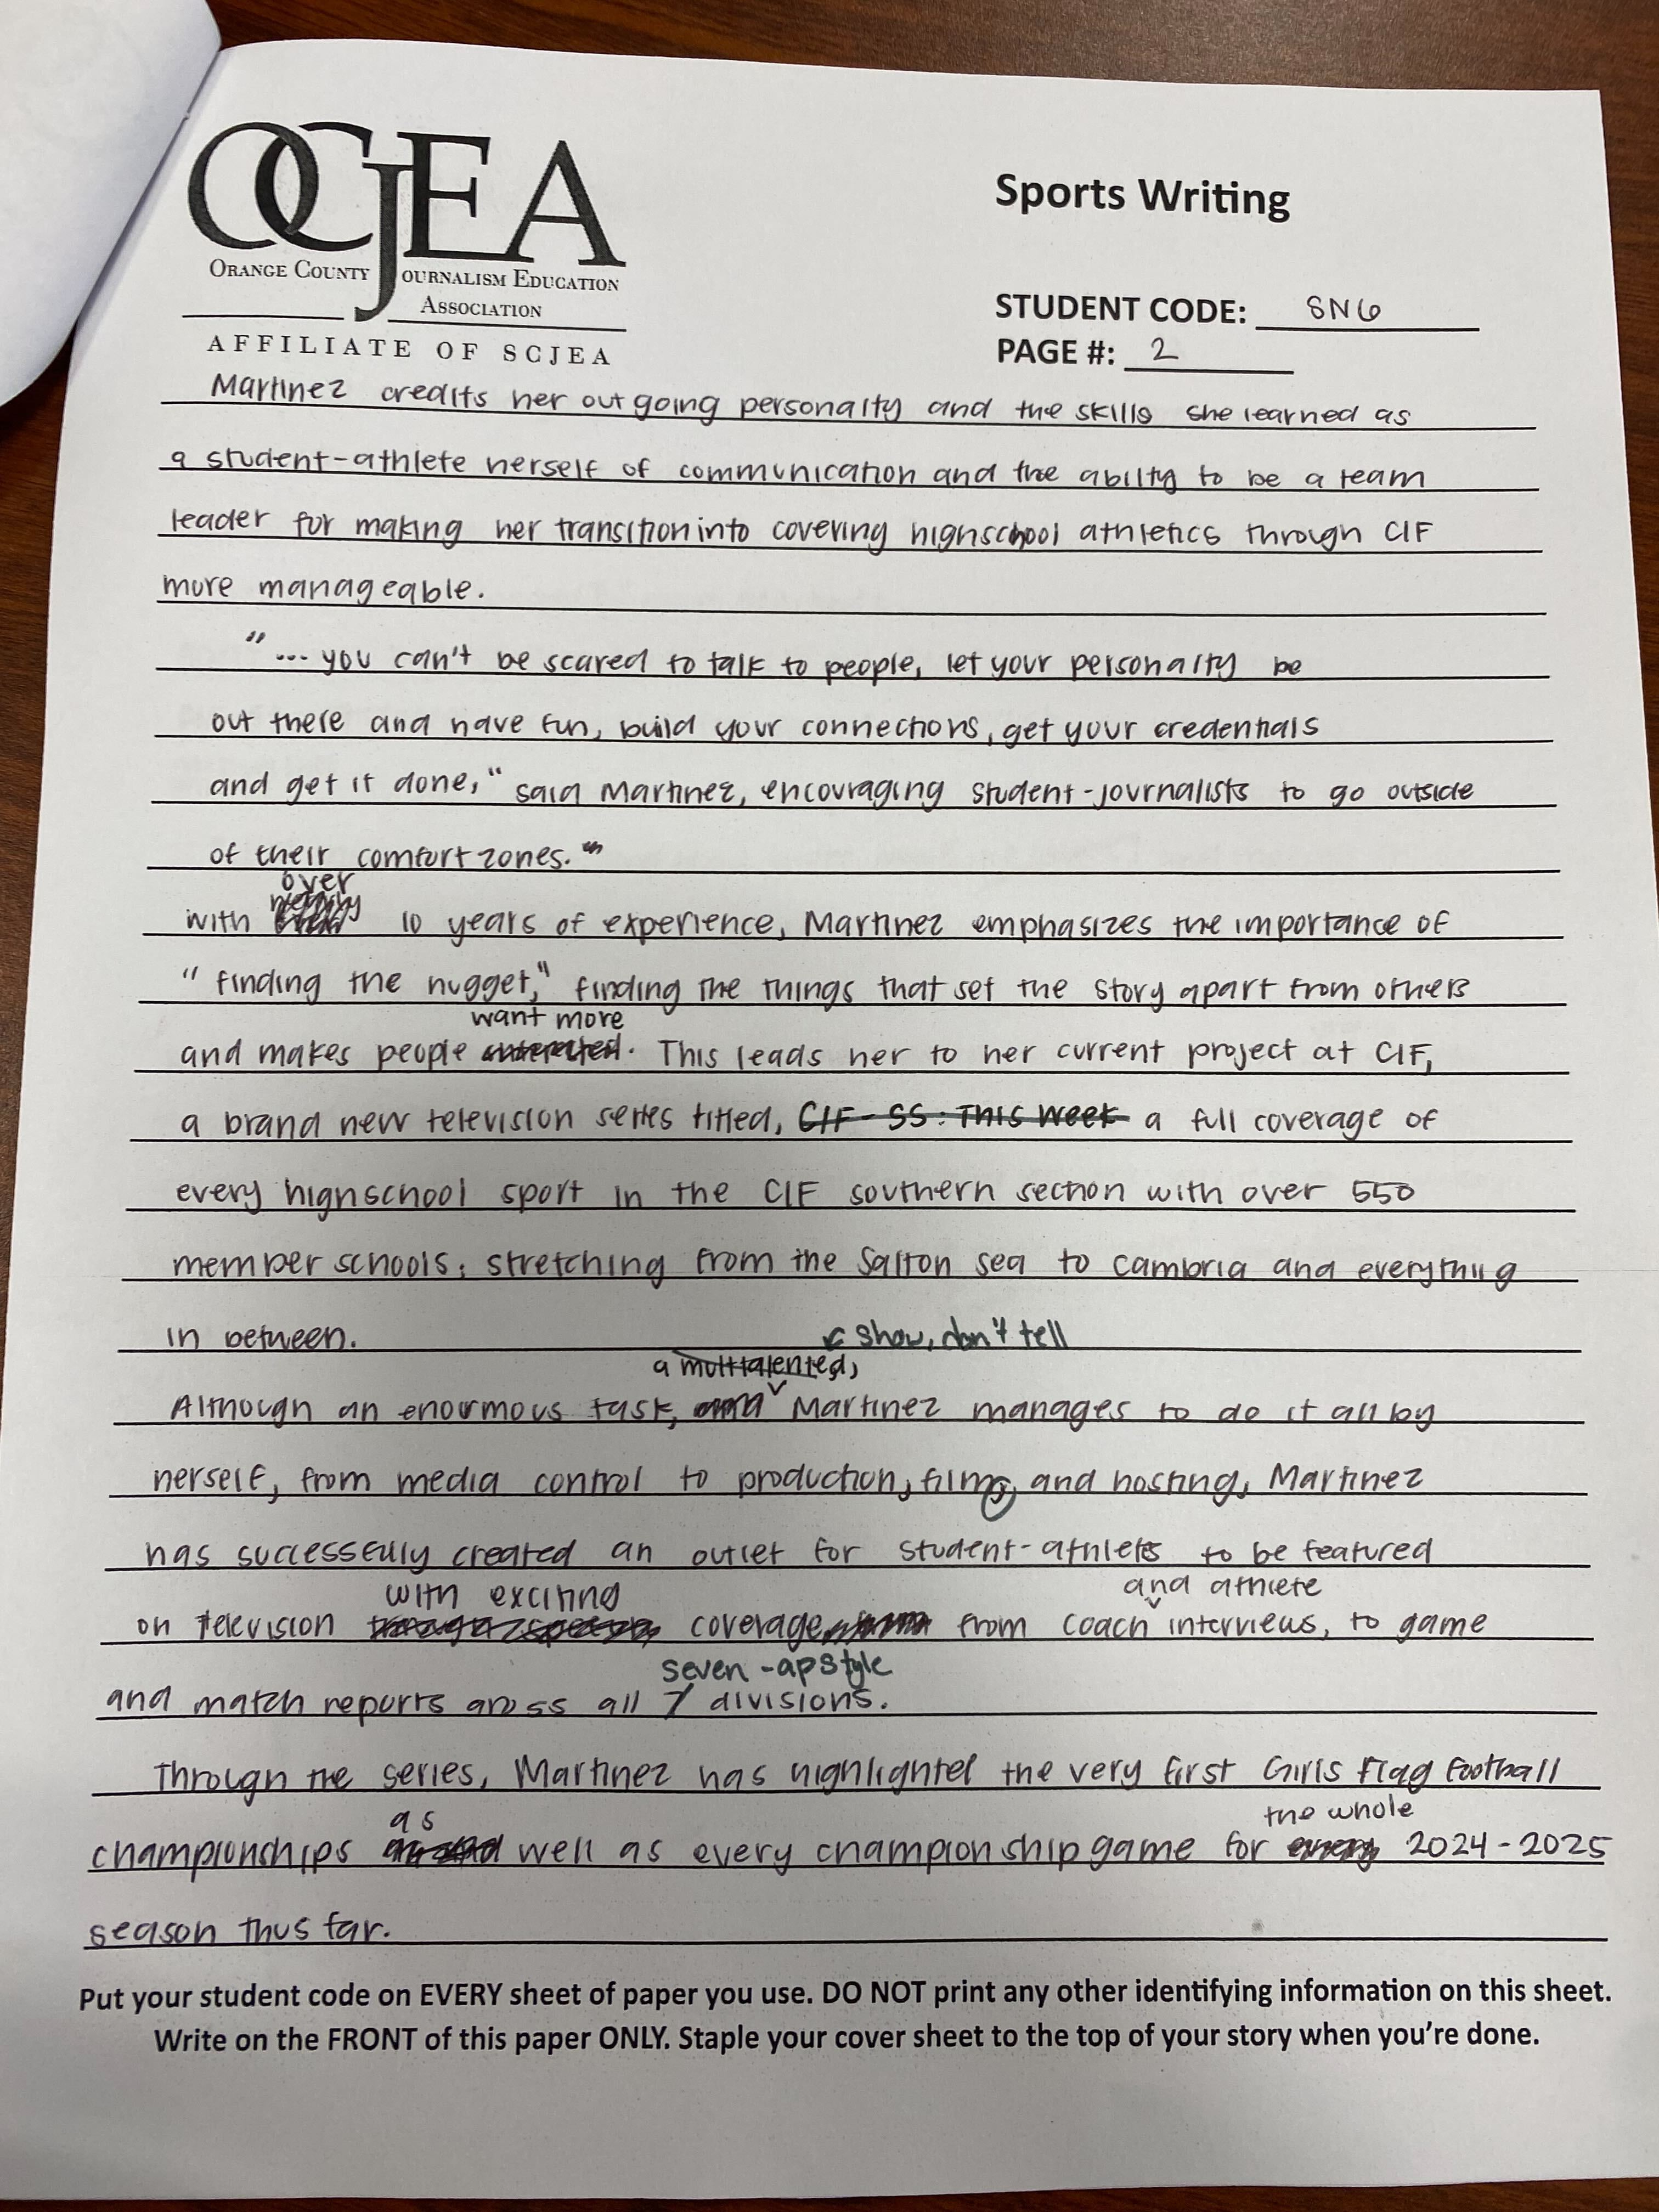 OCJEA
ORANGE COUNTY JOURNALISM EDUCATION
ASSOCIATION
AFFILIATE OF SCJEA
Sports Writing
STUDENT CODE: SN6
PAGE #: 2
Martinez credits her outgoing personalty and the skills she learned as
a student-athlete herself of communication and the abilty to be a team
leader for making her transition into covering highschool athletics through CIF
more manageable.
"... you can't be scared to talk to people, let your personalty be
out there and have fun, build your connections, get your credentials
and get it done," said Martinez, encouraging student-journalists to go outside
of their comfort zones.
over
with 10 years of experience, Martinez emphasizes the importance of
"finding the nugget," finding the things that set the story apart from others
want more
and makes people. This leads her to her current project at CIF,
a brand new television series titled, CIF-SS: This Week a full coverage of
every highschool sport in the CIF southern section with over 550
member schools; stretching from the Salton sea to Cambria and everything
in between.
show, don't tell
a multitalented,
Although an enormous task, Martinez manages to do it all by
herself, from media control to production, film, and hosting, Martinez
has successfully created an outlet for student-athletes to be featured
with exciting and athlete
on television coverage from coach interviews, to game
seven - ap style
and match reports aross all 7 divisions.
Through the series, Martinez has highlighted the very first Girls Flag Football
as the whole
championships well as every championship game for 2024-2025
season thus far.
Put your student code on EVERY sheet of paper you use. DO NOT print any other identifying information on this sheet.
Write on the FRONT of this paper ONLY. Staple your cover sheet to the top of your story when you're done.